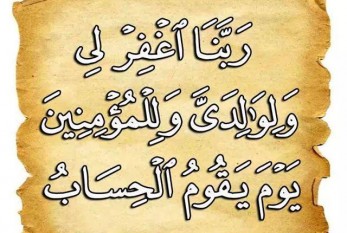 رَبَّنَا ٱغْفِرْ لِي
وَلِوَٰلِدَيَّ وَلِلْمُؤْمِنِينَ
يَوْمَ يَقُومُ ٱلْحِسَابُ